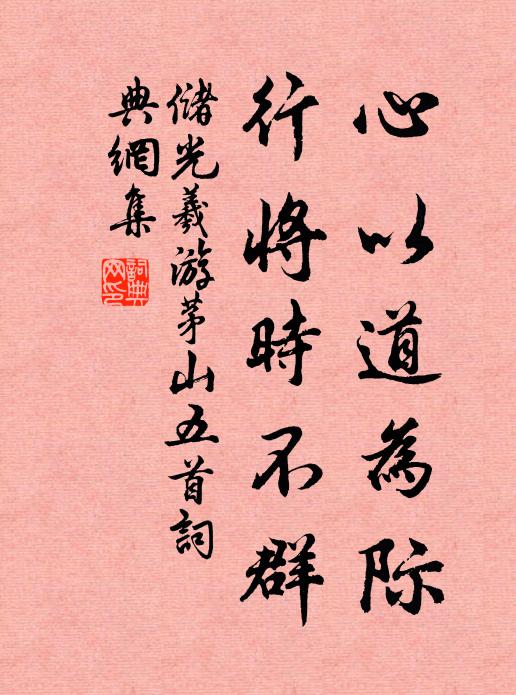 心以道為际
行将時不群
儲光羲游茅山五首詞
典網集
詞典网印